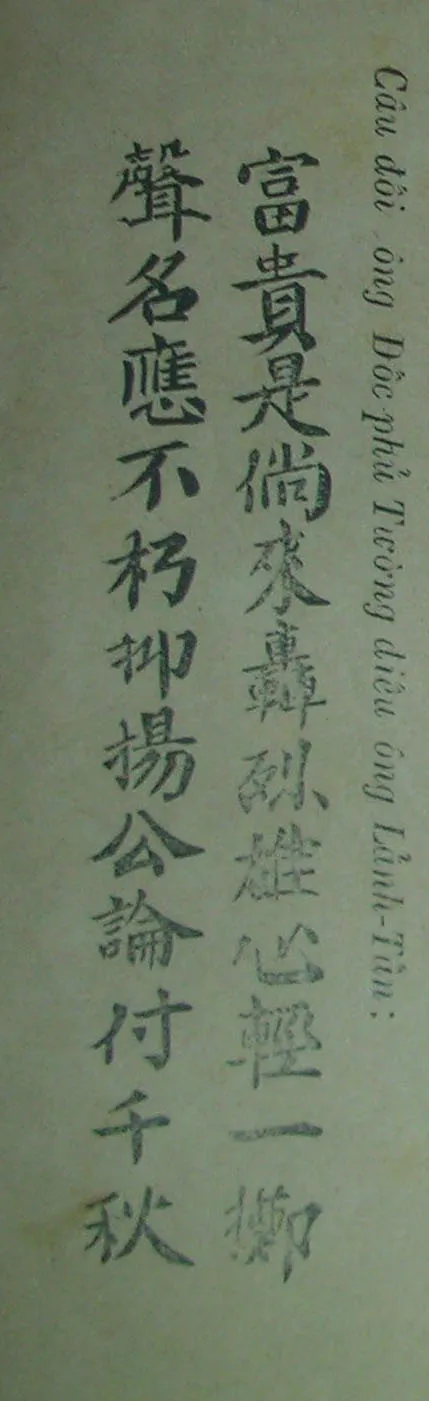 Câu đối ông Đốc-phủ Tường điếu ông Lảnh-Tấn:
富貴是倘來轟烈雄心輕一擲
聲名應不朽抑揚公論付千秋